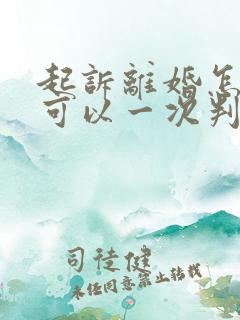 起訴離婚怎
可以一次判
司徒健
未经同意禁止转载